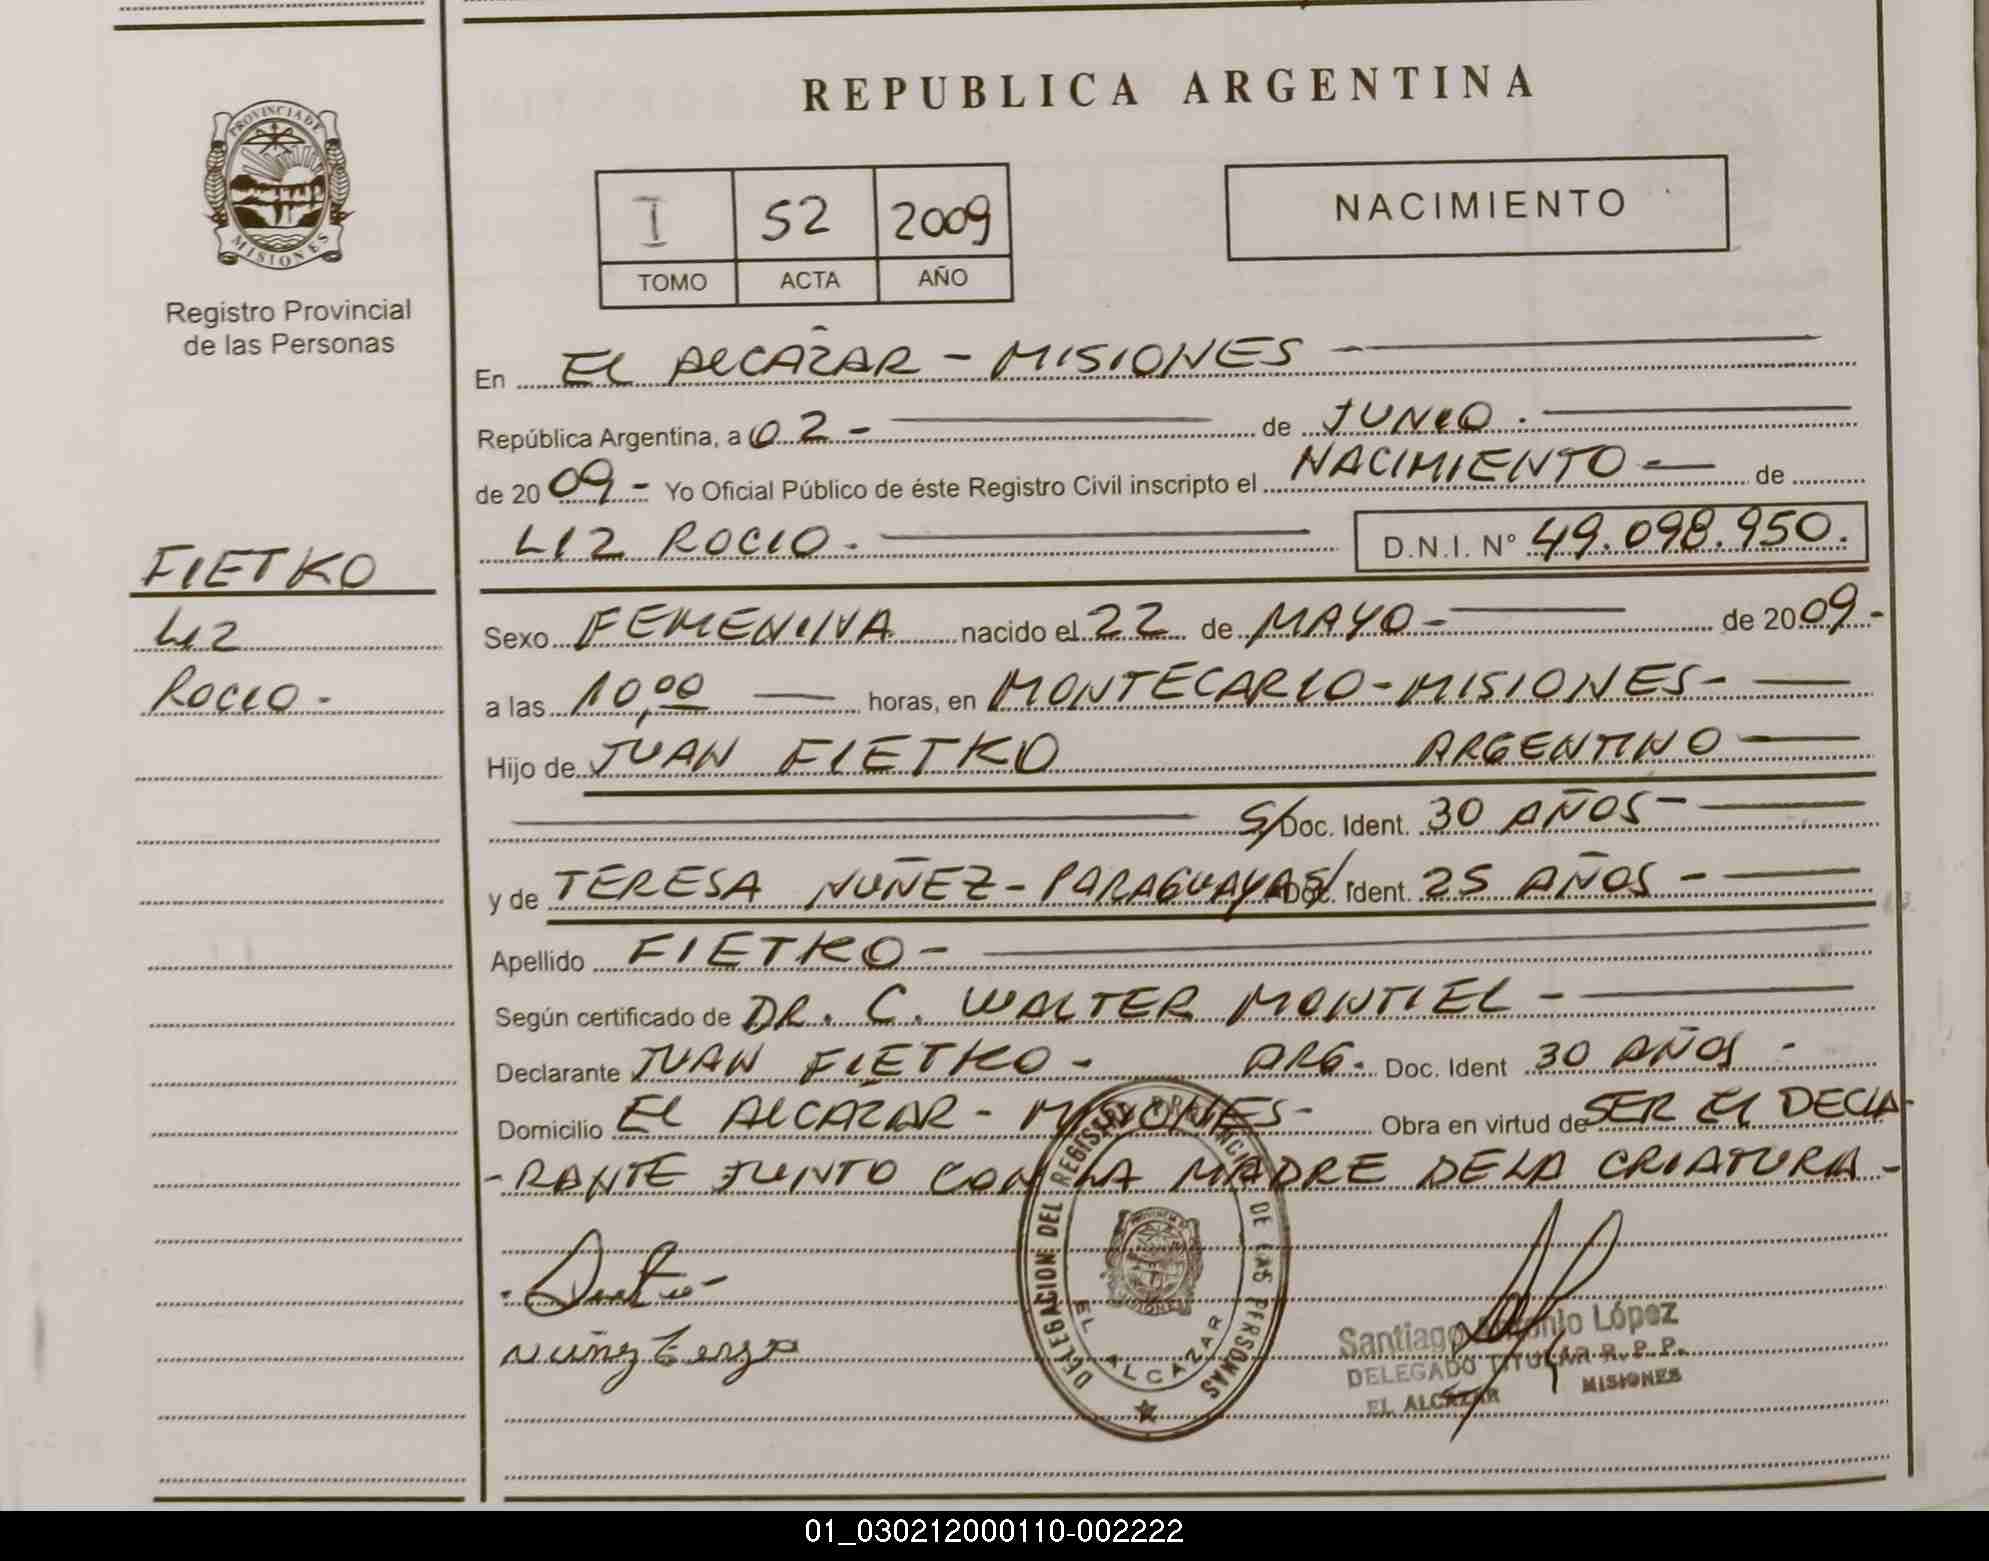 REPUBLICA ARGENTINA
PROVINCIA DE
MISIONES
Registro Provincial
de las Personas
I 52 2009
TOMO ACTA AÑO
NACIMIENTO
En EL ALCAZAR - MISIONES -
República Argentina, a 02 - de JUNIO .
de 2009 - Yo Oficial Público de éste Registro Civil inscripto el NACIMIENTO - de
LIZ ROCIO . D.N.I. N° 49.098.950.
FIETKO
LIZ
ROCIO -
Sexo FEMENINA nacido el 22 de MAYO - de 2009 -
a las 10,00 horas, en MONTECARLO - MISIONES -
Hijo de JUAN FIETKO ARGENTINO
S/Doc. Ident. 30 AÑOS -
y de TERESA NUÑEZ - PARAGUAYA S/Doc. Ident. 25 AÑOS -
Apellido FIETKO -
Según certificado de DR. C. WALTER MONTIEL -
Declarante JUAN FIETKO - ARG. Doc. Ident 30 AÑOS -
Domicilio EL ALCAZAR - MISIONES - Obra en virtud de SER EL DECLA-
-RANTE JUNTO CON LA MADRE DE LA CRIATURA -
DELEGACION DEL REGISTRO PROVINCIAL DE LAS PERSONAS
EL ALCAZAR
Nuñez Teresa
Santiago Antonio López
DELEGADO TITULAR R. P. P.
EL ALCAZAR MISIONES
01_030212000110-002222